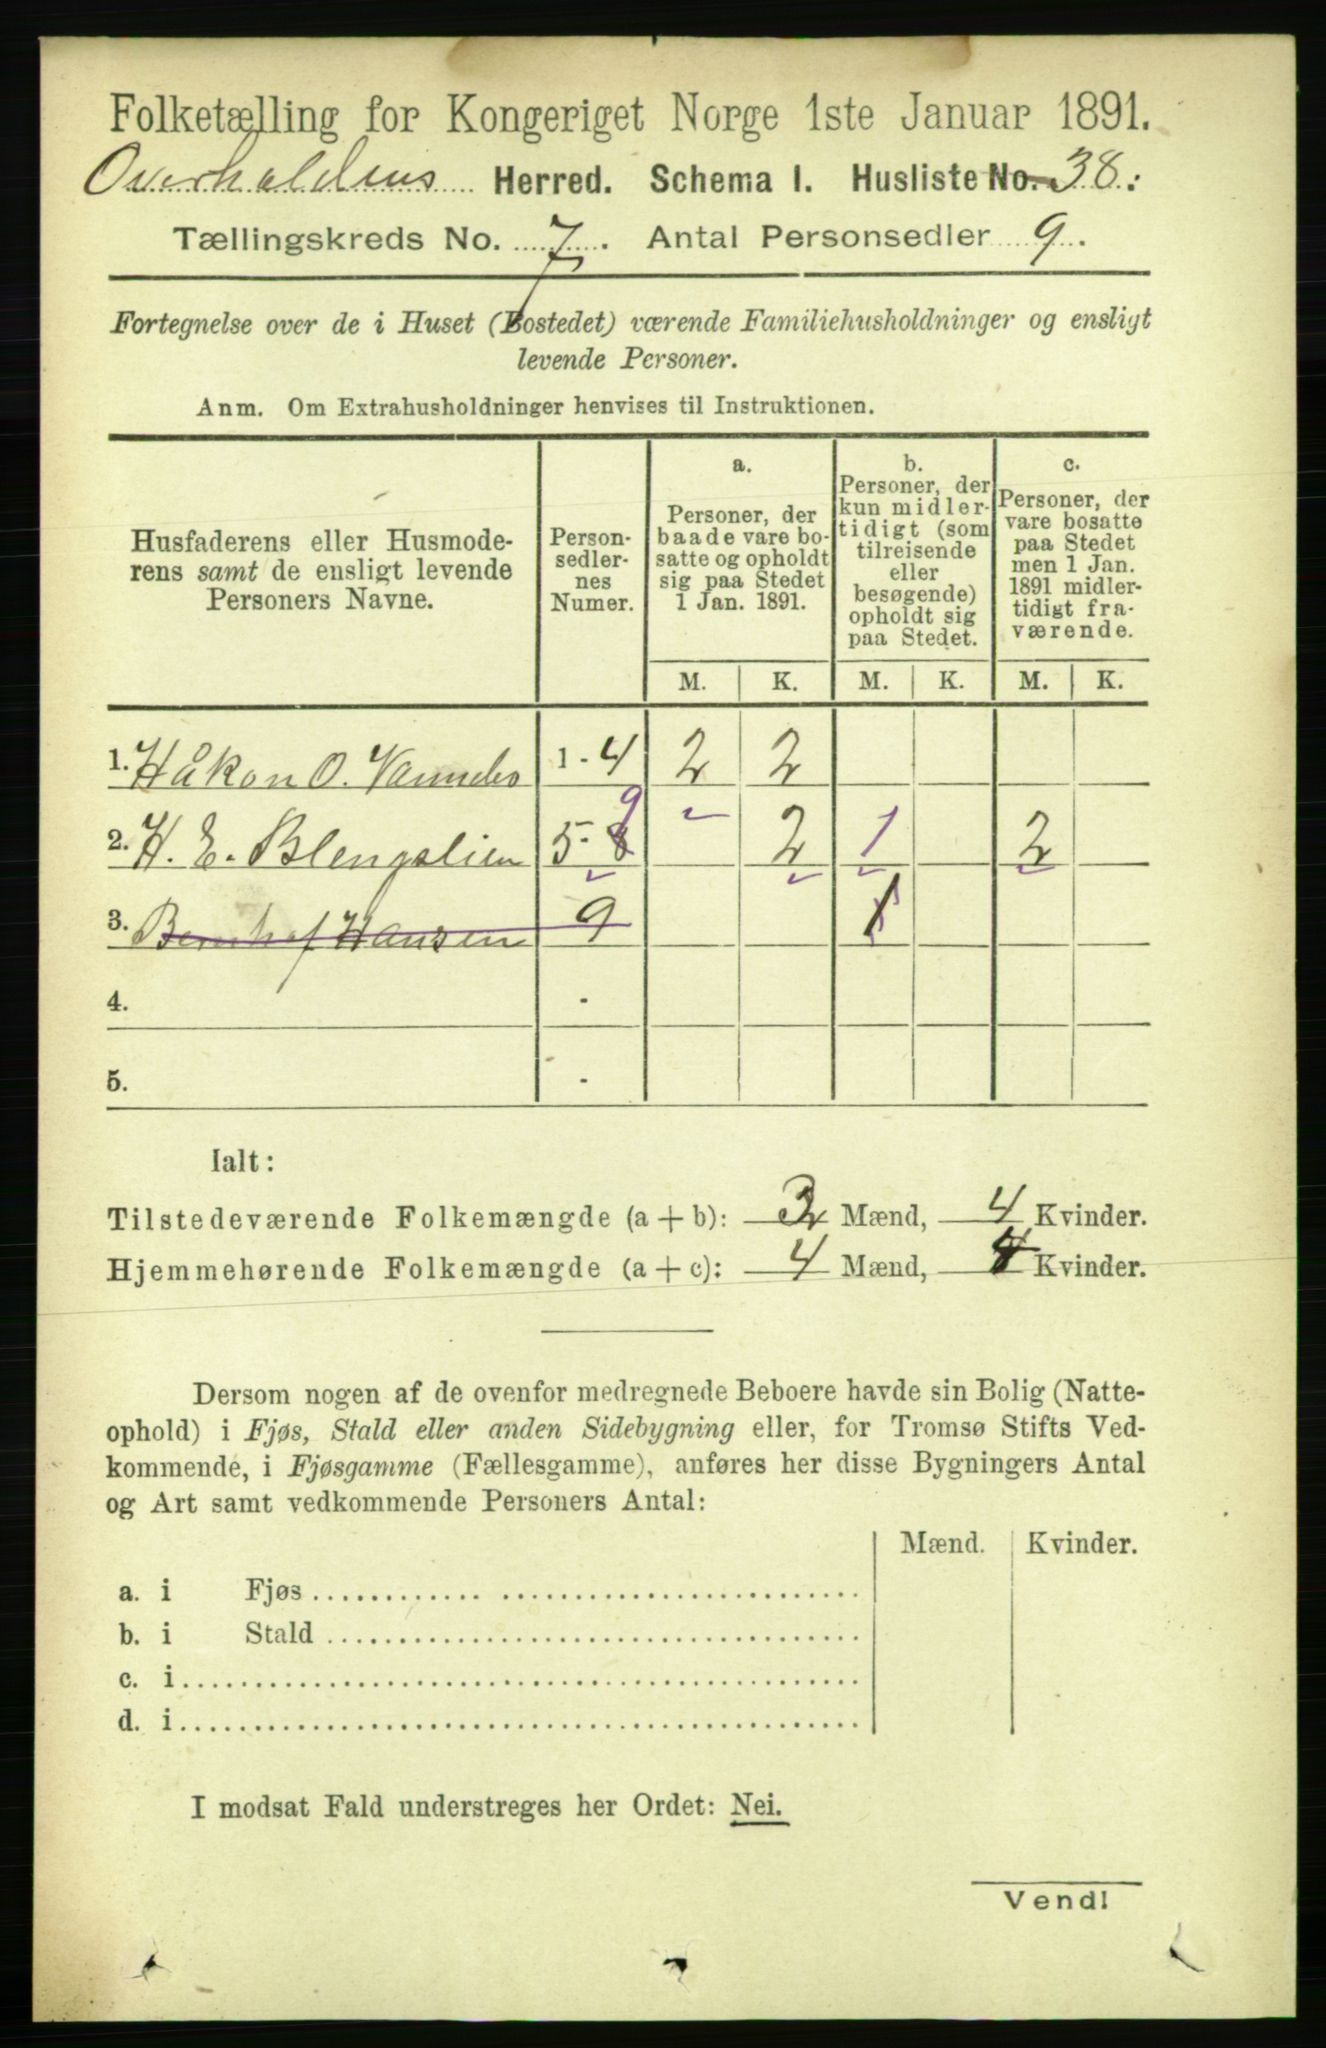 Folketælling for Kongeriget Norge 1ste Januar 1891.
Overhaldens Herred. Schema I. Husliste No. 38.
Tællingskreds No. 7. Antal Personsedler 9.
Fortegnelse over de i Huset (Bostedet) værende Familiehusholdninger og ensligt
levende Personer.
Anm. Om Extrahusholdninger henvises til Instruktionen.
Husfaderens eller Husmode-
rens samt de ensligt levende
Personers Navne.
Person-
sedler-
nes
Numer.
a.
Personer, der
baade vare bo-
satte og opholdt
sig paa Stedet
1 Jan. 1891.
b.
Personer, der
kun midler-
tidigt (som
tilreisende
eller
besøgende)
opholdt sig
paa Stedet.
c.
Personer, der
vare bosatte
paa Stedet
men 1 Jan.
1891 midler-
tidigt fra-
værende.
M. K. M. K. M. K.
1. Håkon O. Vannebo 1 - 4 2 2
2. H. E. Blengslien 5 - 8 9 2 1 2
3. Bernhof Hansen 9 1
4. -
5. -
Ialt:
Tilstedeværende Folkemængde (a + b): 3 Mænd, 4 Kvinder.
Hjemmehørende Folkemængde (a + c): 4 Mænd, 4 Kvinder.
Dersom nogen af de ovenfor medregnede Beboere havde sin Bolig (Natte-
ophold) i Fjøs, Stald eller anden Sidebygning eller, for Tromsø Stifts Ved-
kommende, i Fjøsgamme (Fællesgamme), anføres her disse Bygningers Antal
og Art samt vedkommende Personers Antal:
Mænd. Kvinder.
a. i Fjøs
b. i Stald
c. i
d. i
I modsat Fald understreges her Ordet: Nei.
Vend!